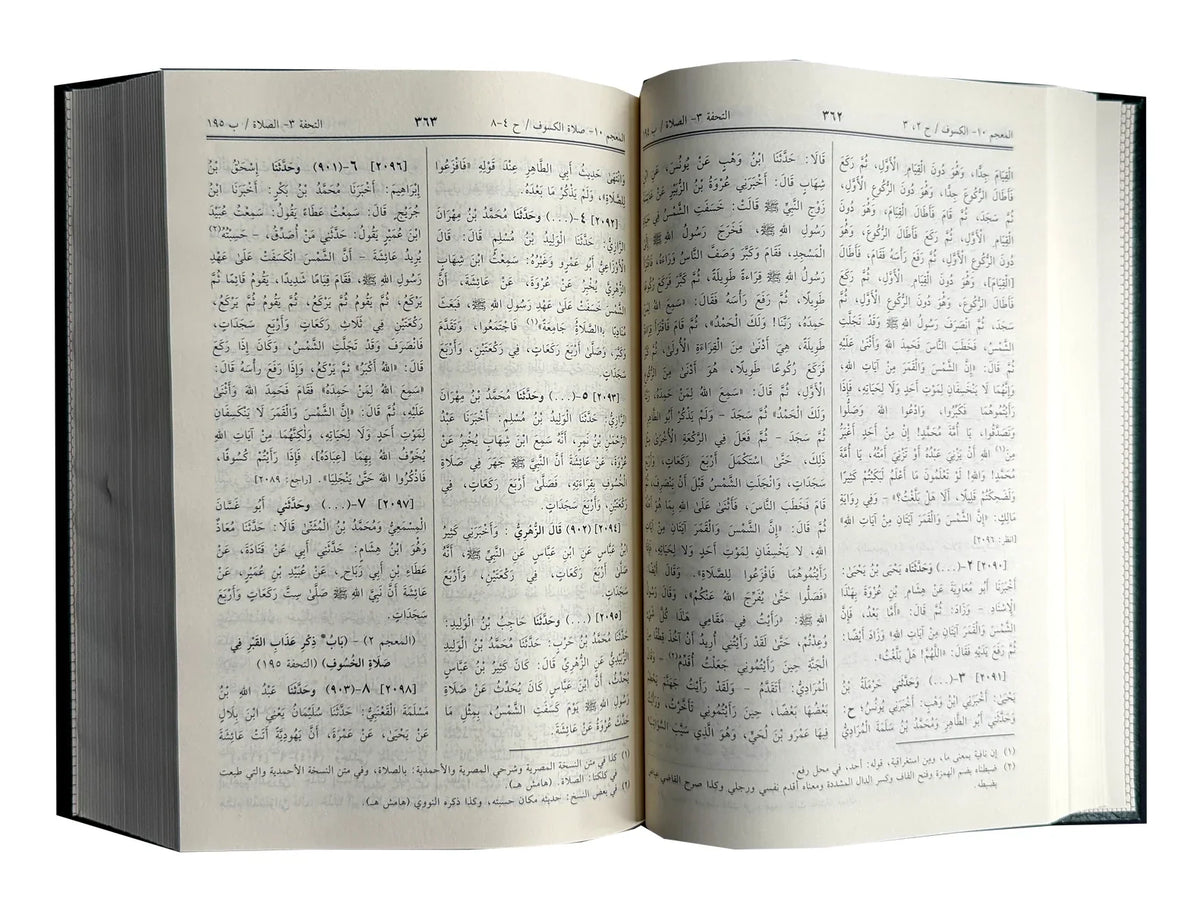 المعجم ١٠- الكسوف / ح ٢، ٣
٣٦٢
التحفة ٣- الصلاة / ب ١٩٥
الْقِيَامَ جِدًّا، وَهُوَ دُونَ الْقِيَامِ الْأَوَّلِ، ثُمَّ رَكَعَ
فَأَطَالَ الرُّكُوعَ جِدًّا، وَهُوَ دُونَ الرُّكُوعِ الْأَوَّلِ،
ثُمَّ سَجَدَ، ثُمَّ قَامَ فَأَطَالَ الْقِيَامَ، وَهُوَ دُونَ
الْقِيَامِ الْأَوَّلِ، ثُمَّ رَكَعَ فَأَطَالَ الرُّكُوعَ، وَهُوَ
دُونَ الرُّكُوعِ الْأَوَّلِ، ثُمَّ رَفَعَ رَأْسَهُ فَقَامَ، فَأَطَالَ
[الْقِيَامَ]، وَهُوَ دُونَ الْقِيَامِ الْأَوَّلِ، ثُمَّ رَكَعَ
فَأَطَالَ الرُّكُوعَ، وَهُوَ دُونَ الرُّكُوعِ الْأَوَّلِ، ثُمَّ
سَجَدَ، ثُمَّ انْصَرَفَ رَسُولُ اللهِ ﷺ وَقَدْ تَجَلَّتِ
الشَّمْسُ، فَخَطَبَ النَّاسَ فَحَمِدَ اللهَ وَأَثْنَى عَلَيْهِ
ثُمَّ قَالَ: «إِنَّ الشَّمْسَ وَالْقَمَرَ مِنْ آيَاتِ اللهِ،
وَإِنَّهُمَا لَا يَنْخَسِفَانِ لِمَوْتِ أَحَدٍ وَلَا لِحَيَاتِهِ، فَإِذَا
رَأَيْتُمُوهُمَا فَكَبِّرُوا، وَادْعُوا اللهَ وَصَلُّوا
وَتَصَدَّقُوا، يَا أُمَّةَ مُحَمَّدٍ! إِنْ مِنْ أَحَدٍ أَغْيَرُ
مِنَ(١) اللهِ أَنْ يَزْنِيَ عَبْدُهُ أَوْ تَزْنِيَ أَمَتُهُ، يَا أُمَّةَ
مُحَمَّدٍ! وَاللهِ! لَوْ تَعْلَمُونَ مَا أَعْلَمُ لَبَكَيْتُمْ كَثِيرًا
وَلَضَحِكْتُمْ قَلِيلًا، أَلَا هَلْ بَلَّغْتُ؟» وَفِي رِوَايَةِ
مَالِكٍ: «إِنَّ الشَّمْسَ وَالْقَمَرَ آيَتَانِ مِنْ آيَاتِ اللهِ»
[انظر: ٢٠٩٦]
[٢٠٩٠] ٢-(...) وَحَدَّثَنَاه يَحْيَى بْنُ يَحْيَىٰ:
أَخْبَرَنَا أَبُو مُعَاوِيَةَ عَنْ هِشَامِ بْنِ عُرْوَةَ بِهَذَا
الْإِسْنَادِ - وَزَادَ: ثُمَّ قَالَ: «أَمَّا بَعْدُ، فَإِنَّ
الشَّمْسَ وَالْقَمَرَ آيَتَانِ مِنْ آيَاتِ اللهِ» وَزَادَ أَيْضًا:
ثُمَّ رَفَعَ يَدَيْهِ فَقَالَ: «اللَّهُمَّ! هَلْ بَلَّغْتُ».
[٢٠٩١] ٣-(...) وَحَدَّثَنِي حَرْمَلَةُ بْنُ
يَحْيَىٰ: أَخْبَرَنِي ابْنُ وَهْبٍ: أَخْبَرَنِي يُونُسُ؛ ح:
وَحَدَّثَنِي أَبُو الطَّاهِرِ وَمُحَمَّدُ بْنُ سَلَمَةَ الْمُرَادِيُّ
قَالَا: حَدَّثَنَا ابْنُ وَهْبٍ عَنْ يُونُسَ، عَنِ ابْنِ
شِهَابٍ قَالَ: أَخْبَرَنِي عُرْوَةُ بْنُ الزُّبَيْرِ عَنْ عَائِشَةَ
زَوْجِ النَّبِيِّ ﷺ قَالَتْ: خَسَفَتِ الشَّمْسُ فِي
رَسُولِ اللهِ ﷺ، فَخَرَجَ رَسُولُ اللهِ
الْمَسْجِدِ، فَقَامَ وَكَبَّرَ وَصَفَّ النَّاسُ وَرَاءَهُ، فَاقْتَرَأَ
رَسُولُ اللهِ ﷺ قِرَاءَةً طَوِيلَةً، ثُمَّ كَبَّرَ فَرَكَعَ رُكُوعًا
طَوِيلًا، ثُمَّ رَفَعَ رَأْسَهُ فَقَالَ: «سَمِعَ اللهُ لِمَنْ
حَمِدَهُ، رَبَّنَا! وَلَكَ الْحَمْدُ»، ثُمَّ قَامَ فَاقْتَرَأَ
طَوِيلَةً، هِيَ أَدْنَىٰ مِنَ الْقِرَاءَةِ الْأُولَىٰ، ثُمَّ
كَبَّرَ فَرَكَعَ رُكُوعًا طَوِيلًا، هُوَ أَدْنَىٰ مِنَ الرُّكُوعِ
الْأَوَّلِ، ثُمَّ قَالَ: «سَمِعَ اللهُ لِمَنْ حَمِدَهُ، رَبَّنَا!
وَلَكَ الْحَمْدُ» ثُمَّ سَجَدَ - وَلَمْ يَذْكُرْ أَبُو الطَّاهِرِ:
ثُمَّ سَجَدَ - ثُمَّ فَعَلَ فِي الرَّكْعَةِ الْأُخْرَىٰ مِثْلَ
ذَلِكَ، حَتَّى اسْتَكْمَلَ أَرْبَعَ رَكَعَاتٍ، وَأَرْبَعَ
سَجَدَاتٍ، وَانْجَلَتِ الشَّمْسُ قَبْلَ أَنْ يَنْصَرِفَ، ثُمَّ
قَامَ فَخَطَبَ النَّاسَ، فَأَثْنَىٰ عَلَى اللهِ بِمَا هُوَ أَهْلُهُ
ثُمَّ قَالَ: «إِنَّ الشَّمْسَ وَالْقَمَرَ آيَتَانِ مِنْ آيَاتِ
اللهِ، لَا يَخْسِفَانِ لِمَوْتِ أَحَدٍ وَلَا لِحَيَاتِهِ، فَإِذَا
رَأَيْتُمُوهُمَا فَافْزَعُوا لِلصَّلَاةِ». وَقَالَ أَيْضًا:
«فَصَلُّوا حَتَّىٰ يُفَرِّجَ اللهُ عَنْكُمْ»، وَقَالَ رَسُولُ
ﷺ: «رَأَيْتُ فِي مَقَامِي هَذَا كُلَّ شَيْءٍ
وُعِدْتُمْ، حَتَّىٰ لَقَدْ رَأَيْتُنِي أُرِيدُ أَنْ آخُذَ قِطْفًا مِنَ
الْجَنَّةِ حِينَ رَأَيْتُمُونِي جَعَلْتُ أُقَدِّمُ(٢) - وَقَالَ
الْمُرَادِيُّ: أَتَقَدَّمُ - وَلَقَدْ رَأَيْتُ جَهَنَّمَ يَحْطِمُ
بَعْضُهَا بَعْضًا، حِينَ رَأَيْتُمُونِي تَأَخَّرْتُ، وَرَأَيْتُ
فِيهَا عَمْرَو بْنَ لُحَيٍّ، وَهُوَ الَّذِي سَيَّبَ السَّوَائِبَ»
(١) إن نافية بمعنى ما، ومن استغراقية، قوله: أحد، في محل رفع.
(٢) ضبطناه بضم الهمزة وفتح القاف وكسر الدال المشددة ومعناه أقدم نفسي ورجلي وكذا صرح القاضي عياض
بضبطه.
المعجم ١٠- صلاة الكسوف / ح ٤-٨
٣٦٣
التحفة ٣- الصلاة / ب ١٩٥
وَانْتَهَىٰ حَدِيثُ أَبِي الطَّاهِرِ عِنْدَ قَوْلِهِ «فَافْزَعُوا
لِلصَّلَاةِ»، وَلَمْ يَذْكُرْ مَا بَعْدَهُ.
[٢٠٩٢] ٤-(...) وَحَدَّثَنَا مُحَمَّدُ بْنُ مِهْرَانَ
الرَّازِيُّ: حَدَّثَنَا الْوَلِيدُ بْنُ مُسْلِمٍ قَالَ: قَالَ
الْأَوْزَاعِيُّ أَبُو عَمْرٍو وَغَيْرُهُ: سَمِعْتُ ابْنَ شِهَابٍ
الزُّهْرِيَّ يُخْبِرُ عَنْ عُرْوَةَ، عَنْ عَائِشَةَ؛ أَنَّ
الشَّمْسَ خَسَفَتْ عَلَىٰ عَهْدِ رَسُولِ اللهِ ﷺ، فَبَعَثَ
مُنَادِيًا «الصَّلَاةُ جَامِعَةٌ»(١) فَاجْتَمَعُوا، وَتَقَدَّمَ
وَكَبَّرَ، وَصَلَّىٰ أَرْبَعَ رَكَعَاتٍ، فِي رَكْعَتَيْنِ، وَأَرْبَعَ
سَجَدَاتٍ.
[٢٠٩٣] ٥-(...) وحَدَّثَنَا مُحَمَّدُ بْنُ مِهْرَانَ
الرَّازِيُّ: حَدَّثَنَا الْوَلِيدُ بْنُ مُسْلِمٍ: أَخْبَرَنَا عَبْدُ
الرَّحْمٰنِ بْنُ نَمِرٍ، أَنَّهُ سَمِعَ ابْنَ شِهَابٍ يُخْبِرُ عَنْ
عُرْوَةَ، عَنْ عَائِشَةَ أَنَّ النَّبِيَّ ﷺ جَهَرَ فِي صَلَاةِ
الْخُسُوفِ بِقِرَاءَتِهِ، فَصَلَّىٰ أَرْبَعَ رَكَعَاتٍ، فِي
رَكْعَتَيْنِ، وَأَرْبَعَ سَجَدَاتٍ.
[٢٠٩٤] (٩٠٢) قَالَ الزُّهْرِيُّ: وَأَخْبَرَنِي كَثِيرُ
ابْنُ عَبَّاسٍ عَنِ ابْنِ عَبَّاسٍ عَنِ النَّبِيِّ ﷺ، أَنَّهُ
صَلَّىٰ أَرْبَعَ رَكَعَاتٍ، فِي رَكْعَتَيْنِ، وَأَرْبَعَ
سَجَدَاتٍ.
[٢٠٩٥] (...) وَحَدَّثَنَا حَاجِبُ بْنُ الْوَلِيدِ:
حَدَّثَنَا مُحَمَّدُ بْنُ حَرْبٍ: حَدَّثَنَا مُحَمَّدُ بْنُ الْوَلِيدِ
الزُّبَيْدِيُّ عَنِ الزُّهْرِيِّ قَالَ: كَانَ كَثِيرُ بْنُ عَبَّاسٍ
يُحَدِّثُ، أَنَّ ابْنَ عَبَّاسٍ كَانَ يُحَدِّثُ عَنْ صَلَاةِ
رَسُولِ اللهِ ﷺ يَوْمَ كَسَفَتِ الشَّمْسُ، بِمِثْلِ مَا
حَدَّثَ عُرْوَةُ عَنْ عَائِشَةَ.
[٢٠٩٦] ٦-(٩٠١) وَحَدَّثَنَا إِسْحٰقُ بْنُ
إِبْرَاهِيمَ: أَخْبَرَنَا مُحَمَّدُ بْنُ بَكْرٍ: أَخْبَرَنَا ابْنُ
جُرَيْجٍ قَالَ: سَمِعْتُ عَطَاءً يَقُولُ: سَمِعْتُ عُبَيْدَ
ابْنَ عُمَيْرٍ يَقُولُ: حَدَّثَنِي مَنْ أُصَدِّقُ، - حَسِبْتُهُ(٢)
يُرِيدُ عَائِشَةَ - أَنَّ الشَّمْسَ انْكَسَفَتْ عَلَىٰ عَهْدِ
رَسُولِ اللهِ ﷺ، فَقَامَ قِيَامًا شَدِيدًا، يَقُومُ قَائِمًا ثُمَّ
يَرْكَعُ، ثُمَّ يَقُومُ ثُمَّ يَرْكَعُ، ثُمَّ يَقُومُ ثُمَّ يَرْكَعُ،
رَكْعَتَيْنِ فِي ثَلَاثِ رَكَعَاتٍ وَأَرْبَعِ سَجَدَاتٍ،
فَانْصَرَفَ وَقَدْ تَجَلَّتِ الشَّمْسُ، وَكَانَ إِذَا رَكَعَ
قَالَ: «اللهُ أَكْبَرُ» ثُمَّ يَرْكَعُ، وَإِذَا رَفَعَ رَأْسَهُ قَالَ:
«سَمِعَ اللهُ لِمَنْ حَمِدَهُ» فَقَامَ فَحَمِدَ اللهَ وَأَثْنَىٰ
عَلَيْهِ، ثُمَّ قَالَ: «إِنَّ الشَّمْسَ وَالْقَمَرَ لَا يَنْكَسِفَانِ
لِمَوْتِ أَحَدٍ وَلَا لِحَيَاتِهِ، وَلَكِنَّهُمَا مِنْ آيَاتِ اللهِ
يُخَوِّفُ اللهُ بِهِمَا [عِبَادَهُ]، فَإِذَا رَأَيْتُمْ كُسُوفًا،
فَاذْكُرُوا اللهَ حَتَّىٰ يَنْجَلِيَا». [راجع: ٢٠٨٩]
[٢٠٩٧] ٧-(...) وحَدَّثَنِي أَبُو غَسَّانَ
الْمِسْمَعِيُّ وَمُحَمَّدُ بْنُ الْمُثَنَّىٰ قَالَا: حَدَّثَنَا مُعَاذٌ
وَهُوَ ابْنُ هِشَامٍ: حَدَّثَنِي أَبِي عَنْ قَتَادَةَ، عَنْ
عَطَاءِ بْنِ أَبِي رَبَاحٍ، عَنْ عُبَيْدِ بْنِ عُمَيْرٍ، عَنْ
عَائِشَةَ أَنَّ نَبِيَّ اللهِ ﷺ صَلَّىٰ سِتَّ رَكَعَاتٍ وَأَرْبَعَ
سَجَدَاتٍ.
(المعجم ٢) - (بَابُ ذِكْرِ عَذَابِ الْقَبْرِ فِي
صَلَاةِ الْخُسُوفِ) (التحفة ١٩٥)
[٢٠٩٨] ٨-(٩٠٣) وحَدَّثَنَا عَبْدُ اللهِ بْنُ
مَسْلَمَةَ الْقَعْنَبِيُّ: حَدَّثَنَا سُلَيْمَانُ يَعْنِي ابْنَ بِلَالٍ
عَنْ يَحْيَىٰ، عَنْ عَمْرَةَ، أَنَّ يَهُودِيَّةً أَتَتْ عَائِشَةَ
(١) كذا في متن النسخة المصرية وشرحي المصرية والأحمدية: بالصلاة، وفي متن النسخة الأحمدية والتي طبعت
في كلكتا: الصلاة. (هامش هـ).
(٢) في بعض النسخ: حديثه مكان حسبته، وكذا ذكره النووي (هامش هـ)